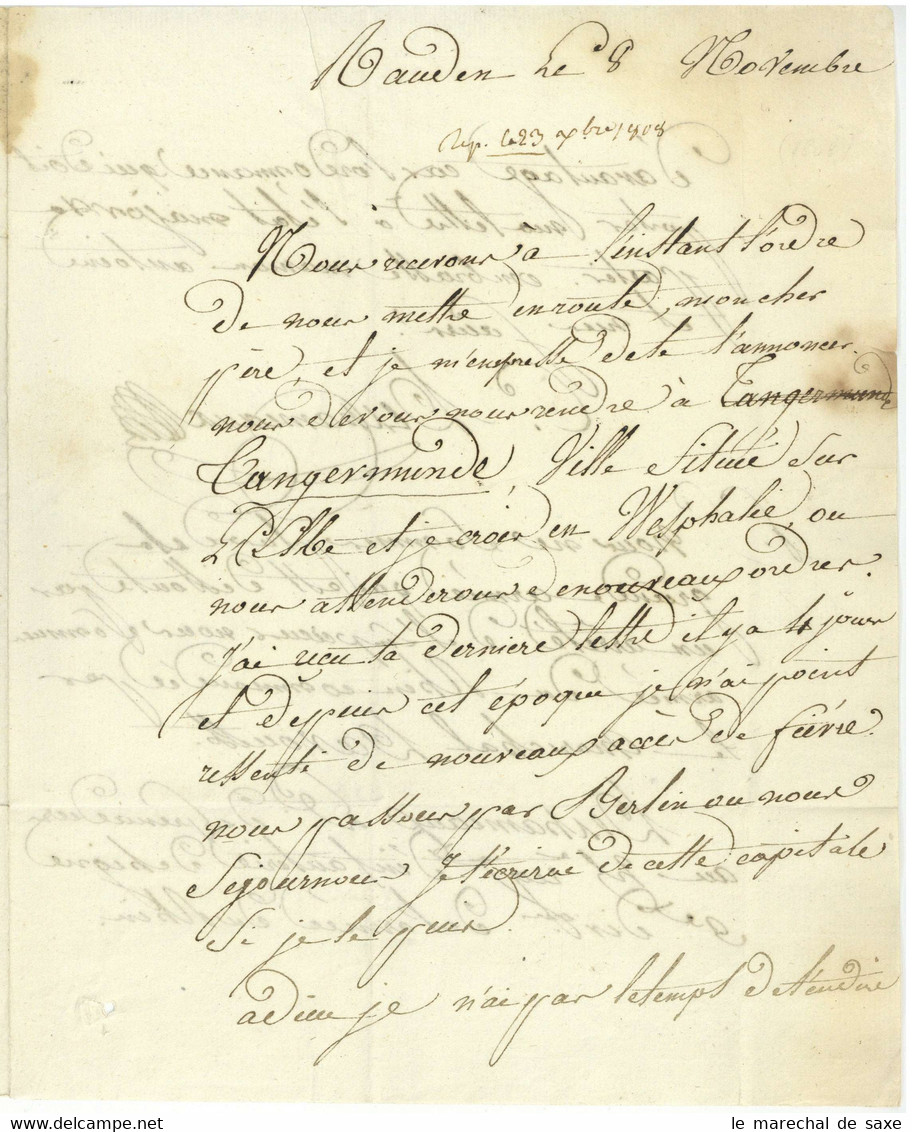 Rauden Le 8 Novembre
rep. le 23 xbre 1808
Nous recevons a l'instant l'ordre
de nous mettre en route, mon cher
père, et je m'empresse de te l'annoncer.
nous devons nous rendre à Tangermunde
Tangermunde, Ville Située Sur
L'Elbe et je crois en Wesphalie, ou
nous attenderons de nouveaux ordres.
j'ai reçu ta derniere lettre il y a 4 jours
et depuis cet époque je n'ai point
ressenti de nouveaux accès de fièvre.
nous passons par Berlin ou nous
Sejournons Je t'écrirai de cette capitale
Si je le puis
adieu je n'ai pas le temps de t'en dire
le marechal de saxe